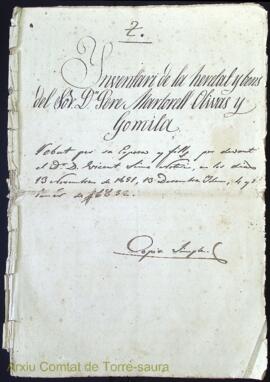 7.
Inventari de la herdat y bens
del Sor. Dn. Pere Martorell Olivas y
Gomila.
per sa Esposa y fills, per devant
el Dr. D. Vicent
13 Novembre de 1851, 13 Decembre
de 1852
Copia Simple
Arxiu Comtat de Torre-saura